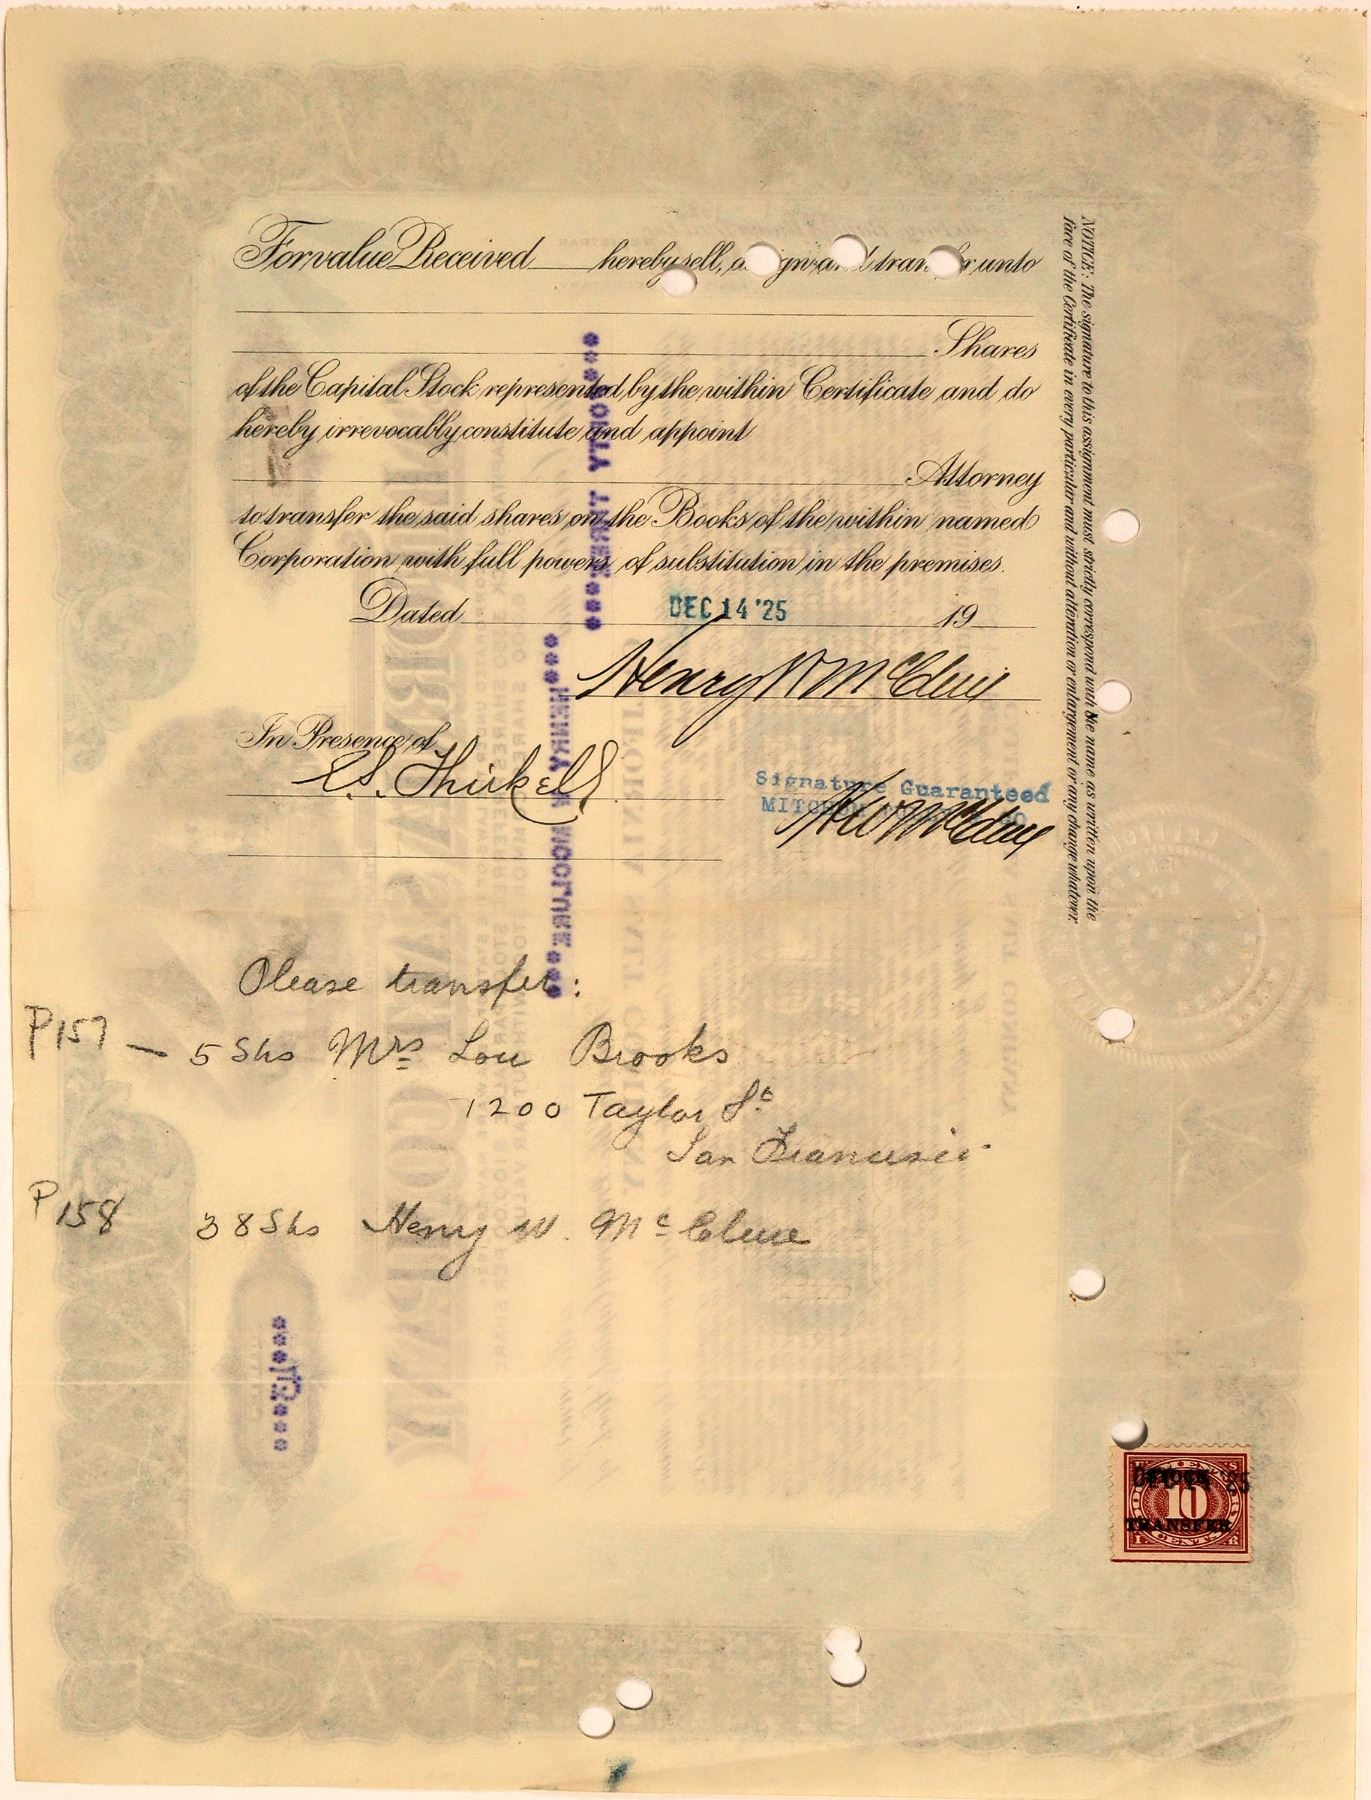 For value Received hereby sell, assign and transfer unto
Shares
of the Capital Stock represented by the within Certificate and do
hereby irrevocably constitute and appoint
Attorney
to transfer the said shares on the Books of the within named
Corporation with full powers of substitution in the premises.
Dated DEC 14 '25 19
Henry W McClure
In Presence of
Signature Guaranteed
HW McClure
NOTICE: The signature to this assignment must strictly correspond with the name as written upon the
face of the Certificate in every particular and without alteration or enlargement or any change whatever.
****FORTY THREE****
****HENRY W MCCLURE****
CALIFORNIA SALT COMPANY
Please transfer:
P157 — 5 Shs Mrs Lou Brooks
1200 Taylor St
San Francisco
P158 38 Shs Henry W. McClure
****43****
DEC 14 '25
10
TRANSFER
CENTS